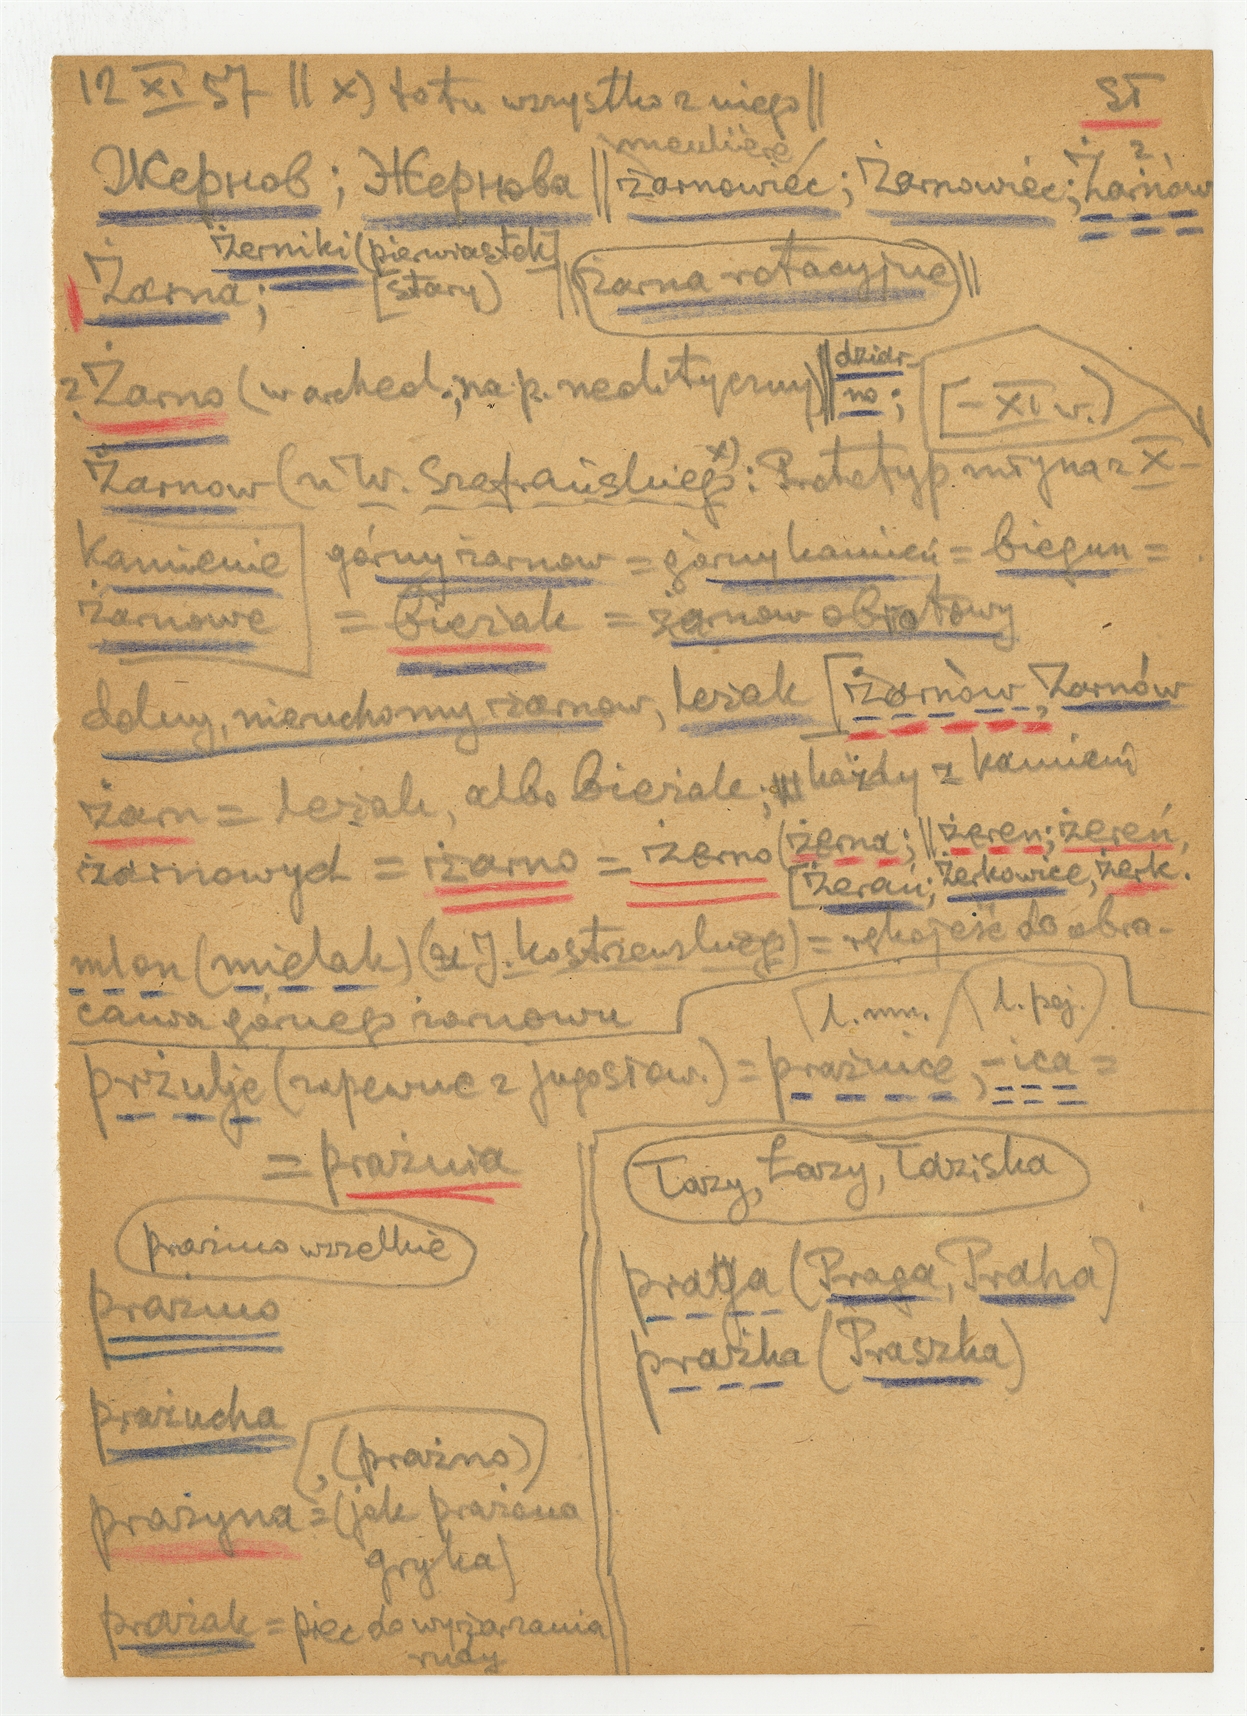 12 XI 57 || x) to tu wszystko z niego || SŁ
meulière
Жернов; Жернова || żarnowiec; Żarnowiec; Żarnów
Żerniki (pierwiastek
Żarna; [stary) || żarna rotacyjne ||
? Żarno (w archeol., na p. neolityczny) || dziar-
no; [-XI w.)
Żarnow (u W. Szafrańskiego x): Prototyp młyna z X-
Kamienie górny żarnow = górny kamień = biegun =
żarnowe = bieżak = żarnow obrotowy
dolny, nieruchomy żarnow, leżak [żarnów, Żarnów
żarn = leżak, albo bieżak; każdy z kamieni
żarnowych = żarno = żerno (żerna; || żeren; żereń,
[Żerań; Żerkowice, żerk.
mlon (mielak) (u J. Kostrzewskiego) = rękojeść do obra-
cania górnego żarnowu
l. mn. / l. poj.
pržulje (zapewne z jugosłow.) = prażnice, -ica =
= prażnia
Łazy, Łazy, Łaziska
prażmo wszelkie
pratja (Praga, Praha)
prażmo
prażka (Praszka)
prażucha
, (prażno)
prażyna = (jak prażona
gryka)
prażak = piec do wyżarzania
rudy